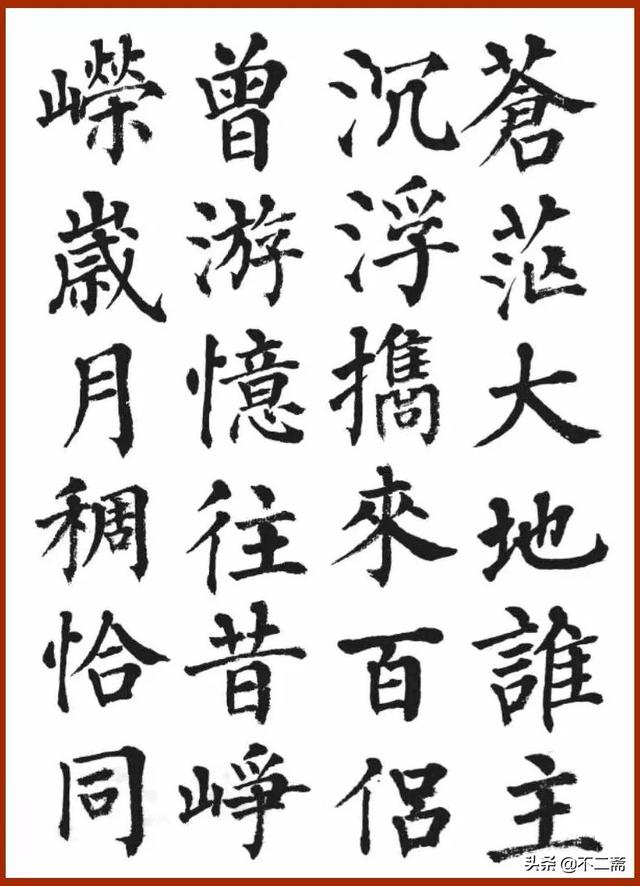 蒼茫大地誰主
沉浮攜來百侶
曾游憶往昔崢
嶸歲月稠恰同
头条@不二斋